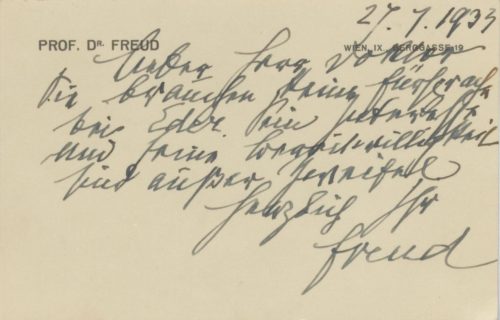 27.7.1933
PROF. DR. FREUD
WIEN, IX., BERGGASSE 19
Lieber Herr Doktor
Sie brauchen keine Fürsprache
bei Eder. Sein Interesse
und seine Bereitwilligkeit
sind außer Zweifel
Herzlich Ihr
Freud